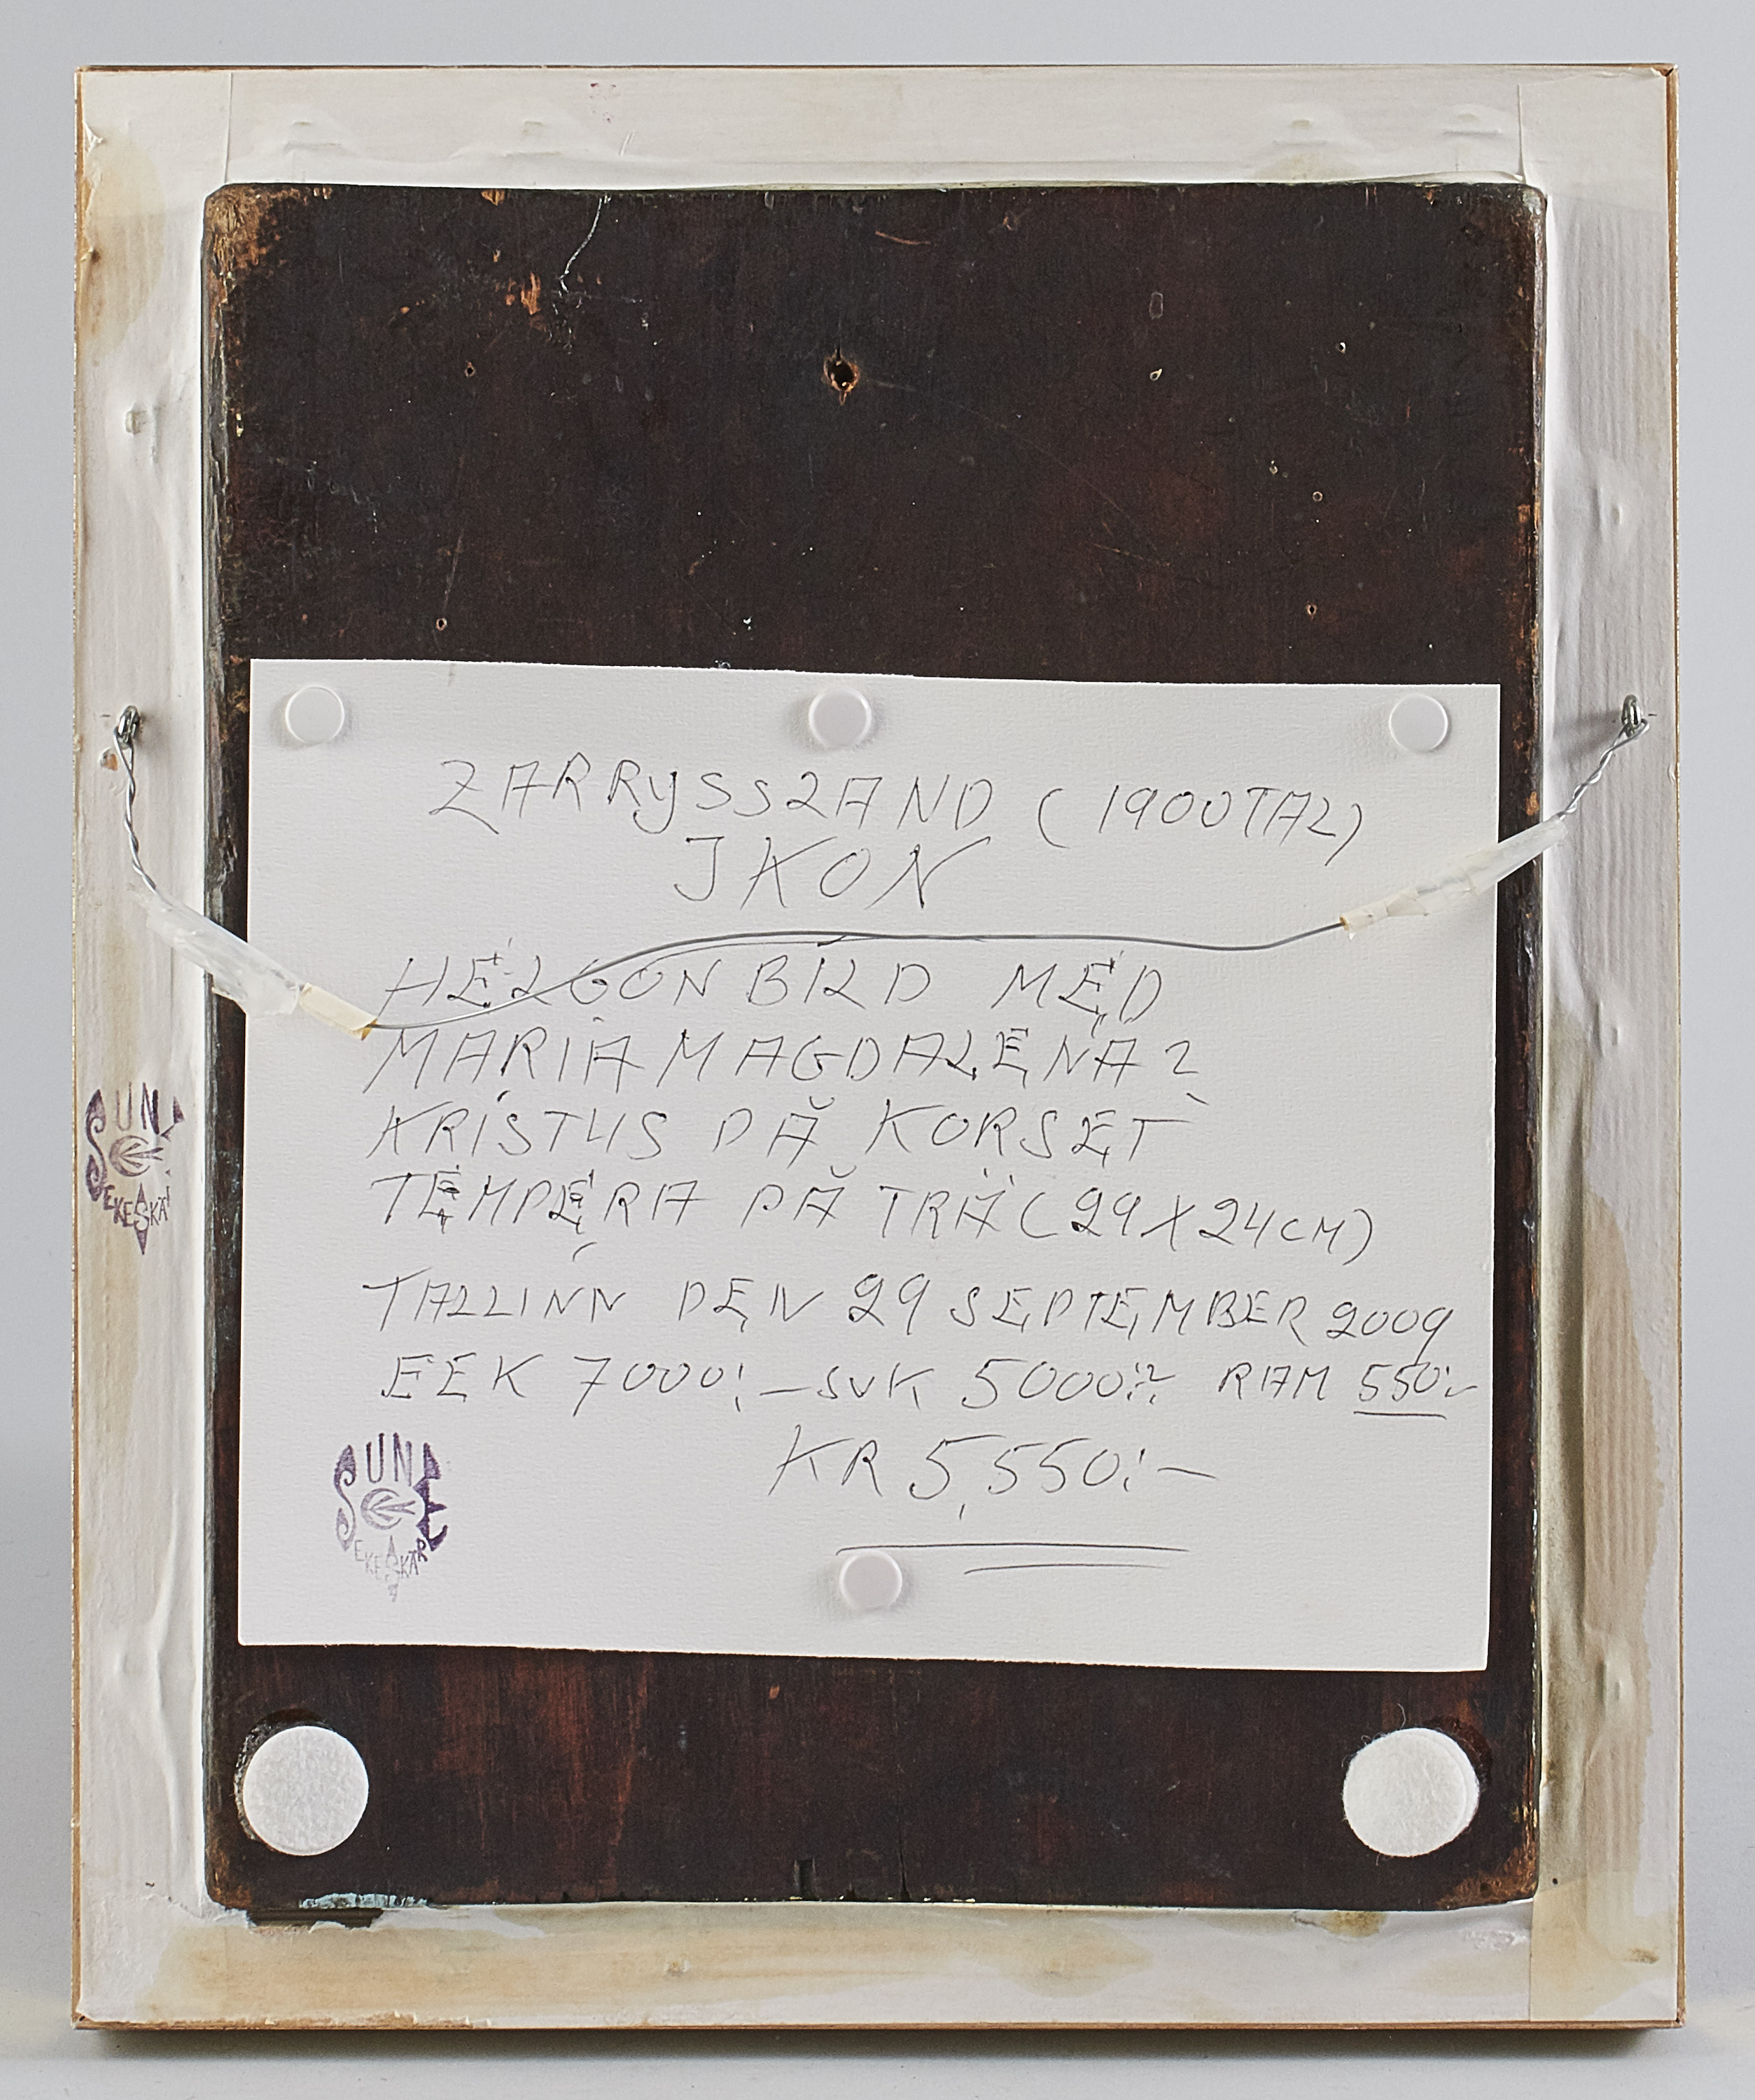 ZARRYSSLAND (1900TAL)
JKON
HELGONBILD MED
MARIA MAGDALENA?
KRISTUS PÅ KORSET
TEMPERA PÅ TRÄ (29X24CM)
TALLINN DEN 29 SEPTEMBER 2009
EEK 7000:- SVK 5000:- RAM 550:-
KR 5,550:-
SUNE
EKESKÄR
SUNE
EKESKÄR